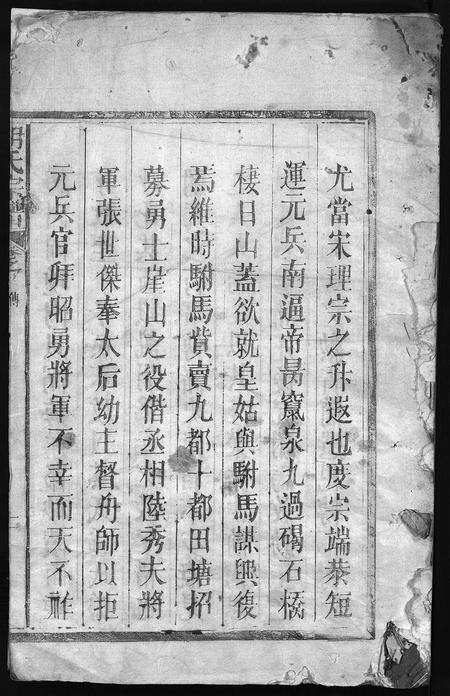 尤當宋理宗之升遐也度宗端恭短
運元兵南逼帝昺竄泉九過碣石橋
棲日山蓋欲就皇姑與駙馬謀興復
焉維時駙馬貲賣九都十都田塘招
募勇士崖山之役偕丞相陸秀夫將
軍張世傑奉太后幼主督舟師以拒
元兵官拜昭勇將軍不幸而天不祚
氏宗譜
傳